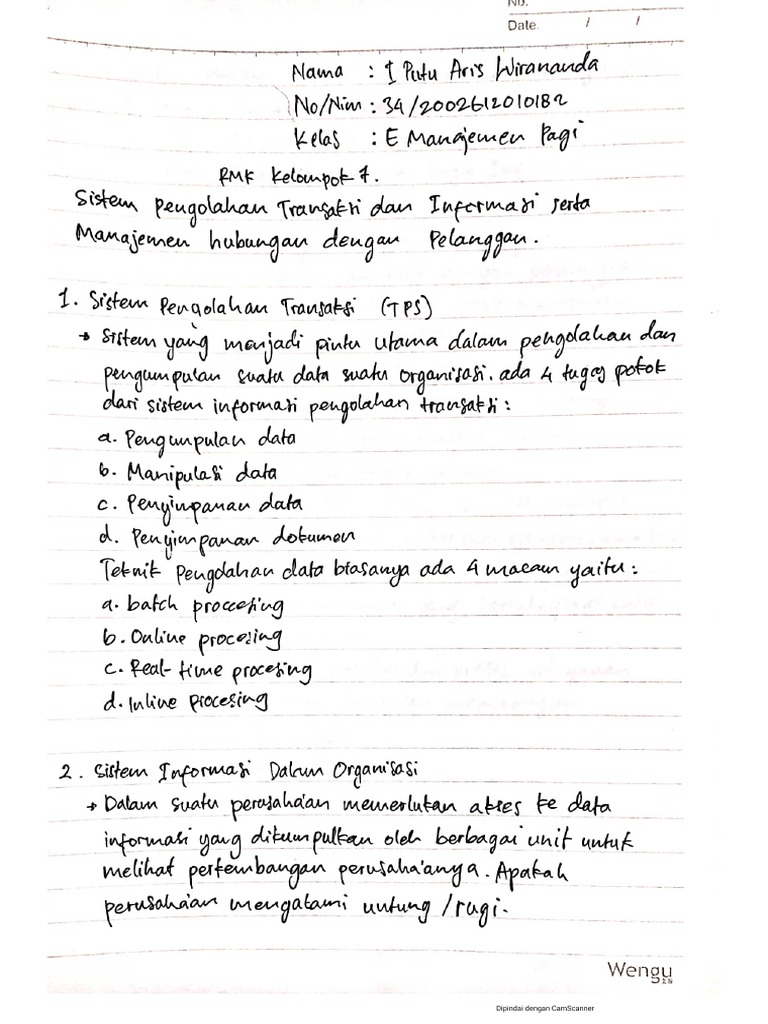 No.
Date. / /
Nama : I Putu Aris Wirananda
No/Nim : 34/2002612010182
Kelas : E Manajemen Pagi
RMK Kelompok 7.
Sistem Pengolahan Transaksi dan Informasi serta
Manajemen hubungan dengan Pelanggan.
1. Sistem Pengolahan Transaksi (TPS)
→ Sistem yang menjadi pintu utama dalam pengolahan dan
pengumpulan suatu data suatu organisasi. ada 4 tugas pokok
dari sistem informasi pengolahan transaksi :
a. Pengumpulan data
b. Manipulasi data
c. Penyimpanan data
d. Penyimpanan dokumen
Teknik Pengolahan data biasanya ada 4 macam yaitu :
a. batch proccesing
b. Online procesing
c. Real-time procesing
d. Inline procesing
2. Sistem Informasi Dalam Organisasi
→ Dalam suatu perusaha'an memerlukan akses ke data
informasi yang dikumpulkan oleh berbagai unit untuk
melihat perkembangan perusaha'anya. Apakah
perusaha'an mengalami untung /rugi.
Wengu
Dipindai dengan CamScanner